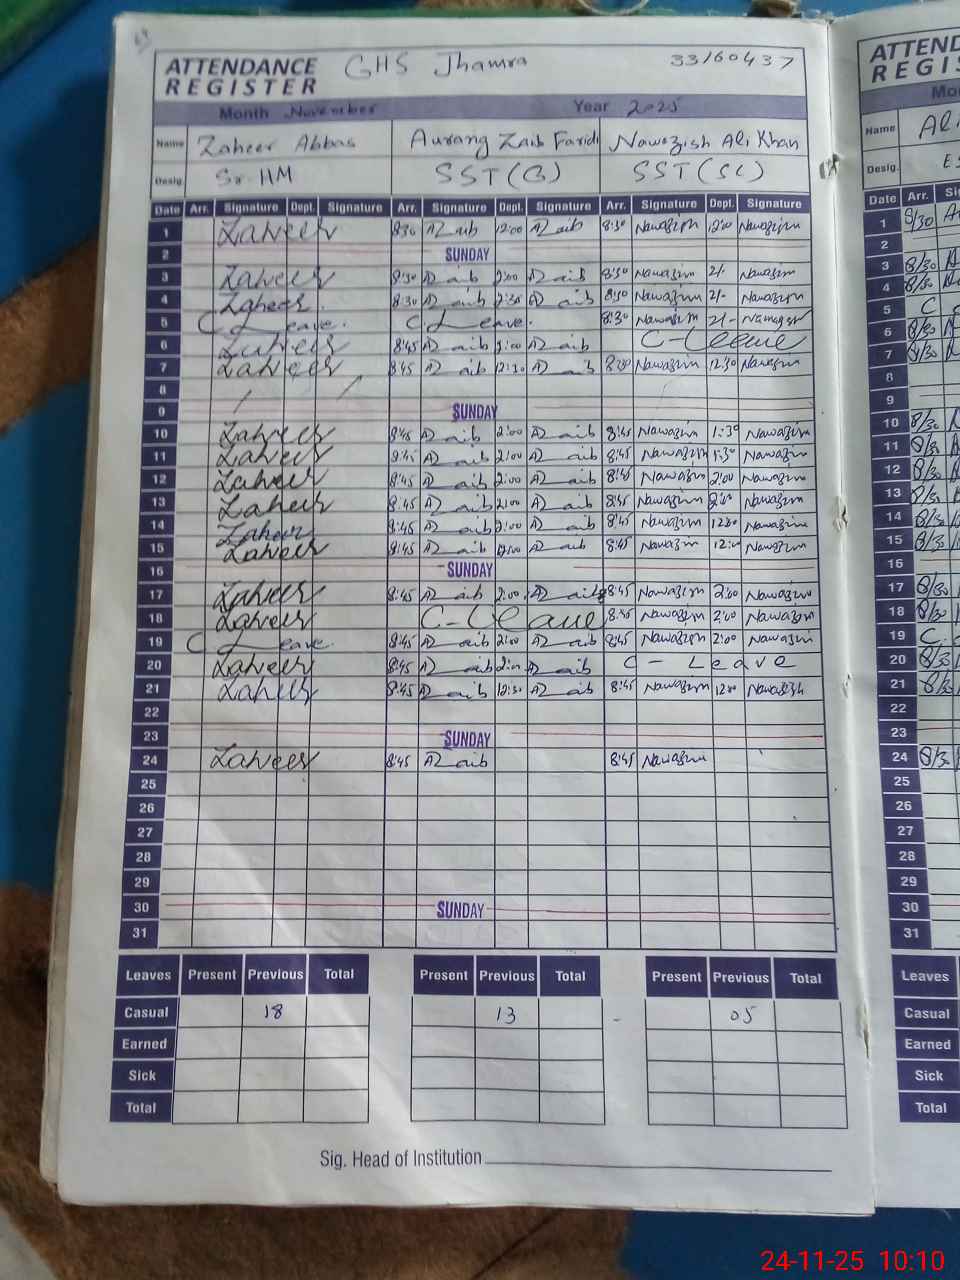 ATTENDANCE REGISTER GHS Jhamra 33160437
Month November Year 2025
Name Zaheer Abbas Aurang Zaib Faridi Nawazish Ali Khan
Desig. Sr. HM SST(G) SST(SC)
Date Arr. Signature Dept. Signature Arr. Signature Dept. Signature Arr. Signature Dept. Signature
1 Zaheer 8:30 AZaib 12:00 AZaib 8:30 Nawazish 12:00 Nawazish
2 SUNDAY
3 Zaheer 8:30 AZaib 2:00 AZaib 8:30 Nawazish 2/- Nawazish
4 Zaheer 8:30 AZaib 2:30 AZaib 8:30 Nawazish 2/- Nawazish
5 C Leave. C Leave. 8:30 Nawazish 2/- Nawazish
6 Zaheer 8:45 AZaib 2:00 AZaib C-Leave
7 Zaheer 8:45 AZaib 12:30 AZaib 8:30 Nawazish 12:30 Nawazish
8
9 SUNDAY
10 Zaheer 8:45 AZaib 2:00 AZaib 8:45 Nawazish 1:30 Nawazish
11 Zaheer 8:45 AZaib 2:00 AZaib 8:45 Nawazish 1:30 Nawazish
12 Zaheer 8:45 AZaib 2:00 AZaib 8:45 Nawazish 2:00 Nawazish
13 Zaheer 8:45 AZaib 2:00 AZaib 8:45 Nawazish 2:00 Nawazish
14 Zaheer 8:45 AZaib 2:00 AZaib 8:45 Nawazish 12:00 Nawazish
15 Zaheer 8:45 AZaib 12:00 AZaib 8:45 Nawazish 12:00 Nawazish
16 SUNDAY
17 Zaheer 8:45 AZaib 2:00 AZaib 8:45 Nawazish 2:00 Nawazish
18 Zaheer C-Leave 8:45 Nawazish 2:00 Nawazish
19 C Leave. 8:45 AZaib 2:00 AZaib 8:45 Nawazish 2:00 Nawazish
20 Zaheer 8:45 AZaib 2:00 AZaib C - Leave
21 Zaheer 8:45 AZaib 12:30 AZaib 8:45 Nawazish 12:00 Nawazish
22
23 SUNDAY
24 Zaheer 8:45 AZaib 8:45 Nawazish
25
26
27
28
29
30 SUNDAY
31
Leaves Present Previous Total Present Previous Total Present Previous Total
Casual 18 13 05
Earned
Sick
Total
Sig. Head of Institution
ATTEND
REGIS
Mo
Name Ali
Desig. ES
Date Arr. Sig
1 8/30
2
3 8/30
4 8/30
5 C
6 8/30
7 8/30
8
9
10 8/30
11 8/30
12 8/30
13 8/30
14 8/30
15 8/30
16
17 8/30
18 8/30
19 C
20 8/30
21 8/30
22
23
24 8/30
25
26
27
28
29
30
31
Leaves
Casual
Earned
Sick
Total
24-11-25 10:10